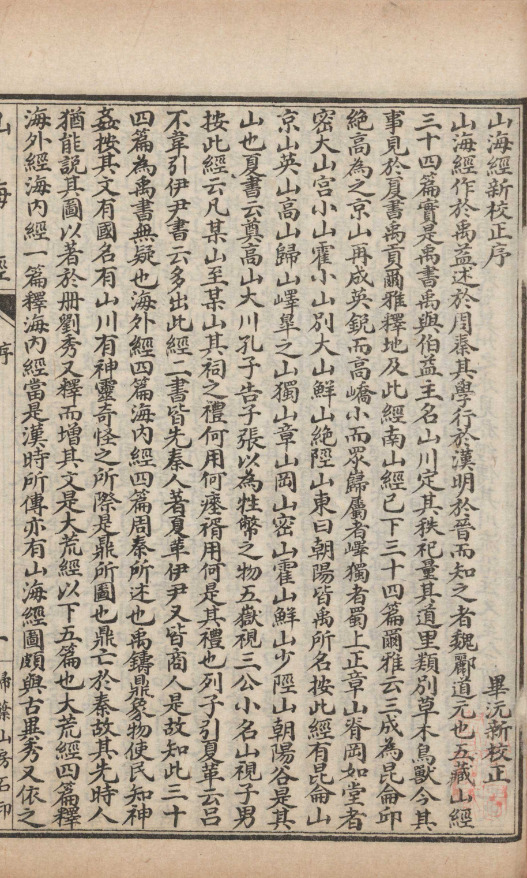 山海經新校正序
畢沅新校正
山海經作於禹益述於周秦其學行於漢明於晉而知之者魏酈道元也五藏山經
三十四篇實是禹書禹與伯益主名山川定其秩祀量其道里類別草木鳥獸今其
事見於夏書禹貢爾雅釋地及此經南山經已下三十四篇爾雅云三成為昆侖邱
絶高為之京山再成英銳而高嶠小而眾巋屬者嶧獨者蜀上正章山脊岡如堂者
密大山宮小山霍小山別大山鮮山絶陘山東曰朝陽皆禹所名按此經有昆侖山
京山英山高山歸山嶧皐之山獨山章山岡山密山霍山鮮山少陘山朝陽谷是其
山也夏書云奠高山大川孔子告子張以為牲幣之物五嶽視三公小名山視子男
按此經云凡某山至某山其祠之禮何用何瘞糈用何是其禮也列子引夏革云呂
不韋引伊尹書云多出此經二書皆先秦人著夏革伊尹又皆商人是故知此三十
四篇為禹書無疑也海外經四篇海內經四篇周秦所述也禹鑄鼎象物使民知神
姦按其文有國名有山川有神靈奇怪之所際是鼎所圖也鼎亡於秦故其先時人
猶能說其圖以著於冊劉秀又釋而增其文是大荒經以下五篇也大荒經四篇釋
海外經海內經一篇釋海內經當是漢時所傳亦有山海經圖頗與古異秀又依之
山海經
序
一
掃葉山房石印